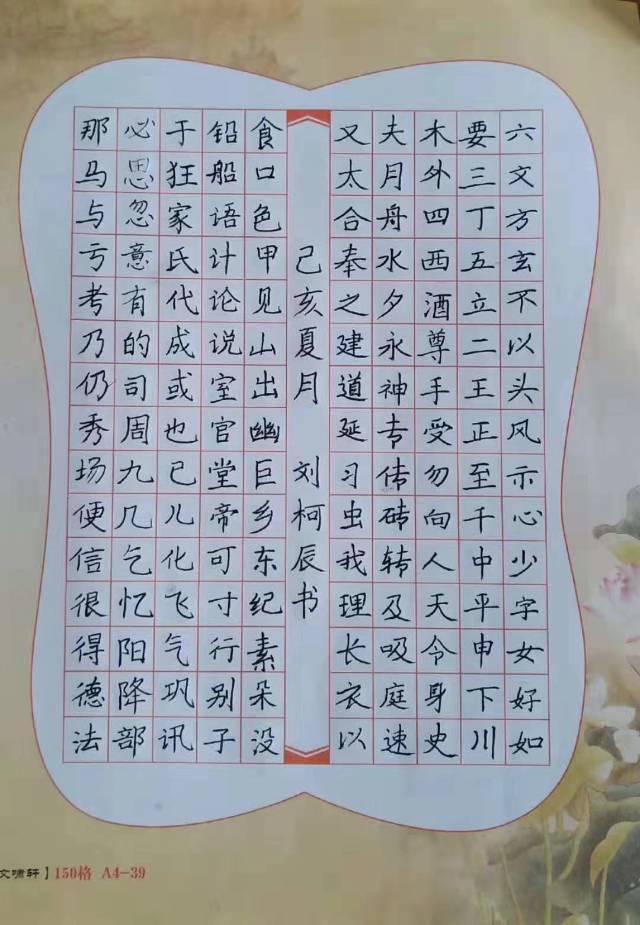 六文方玄不以头风示心少字女好如
要三丁五立二王正至千中平申下川
木外四西酒尊手受勿向人天令身史
夫月舟水夕永神专传砖转及吸庭速
又太合奉之建道延习虫我理长衣以
己亥夏月 刘柯辰书
食口色甲见山出幽巨乡东纪素朵没
铅船语计论说室官堂帝可寸行别子
于狂家氏代成或也已儿化飞气巩讯
必思忽意有的司周九几乞忆阳降部
那马与亏考乃仍秀场便信很得德法
文啸轩】150格 A4-39